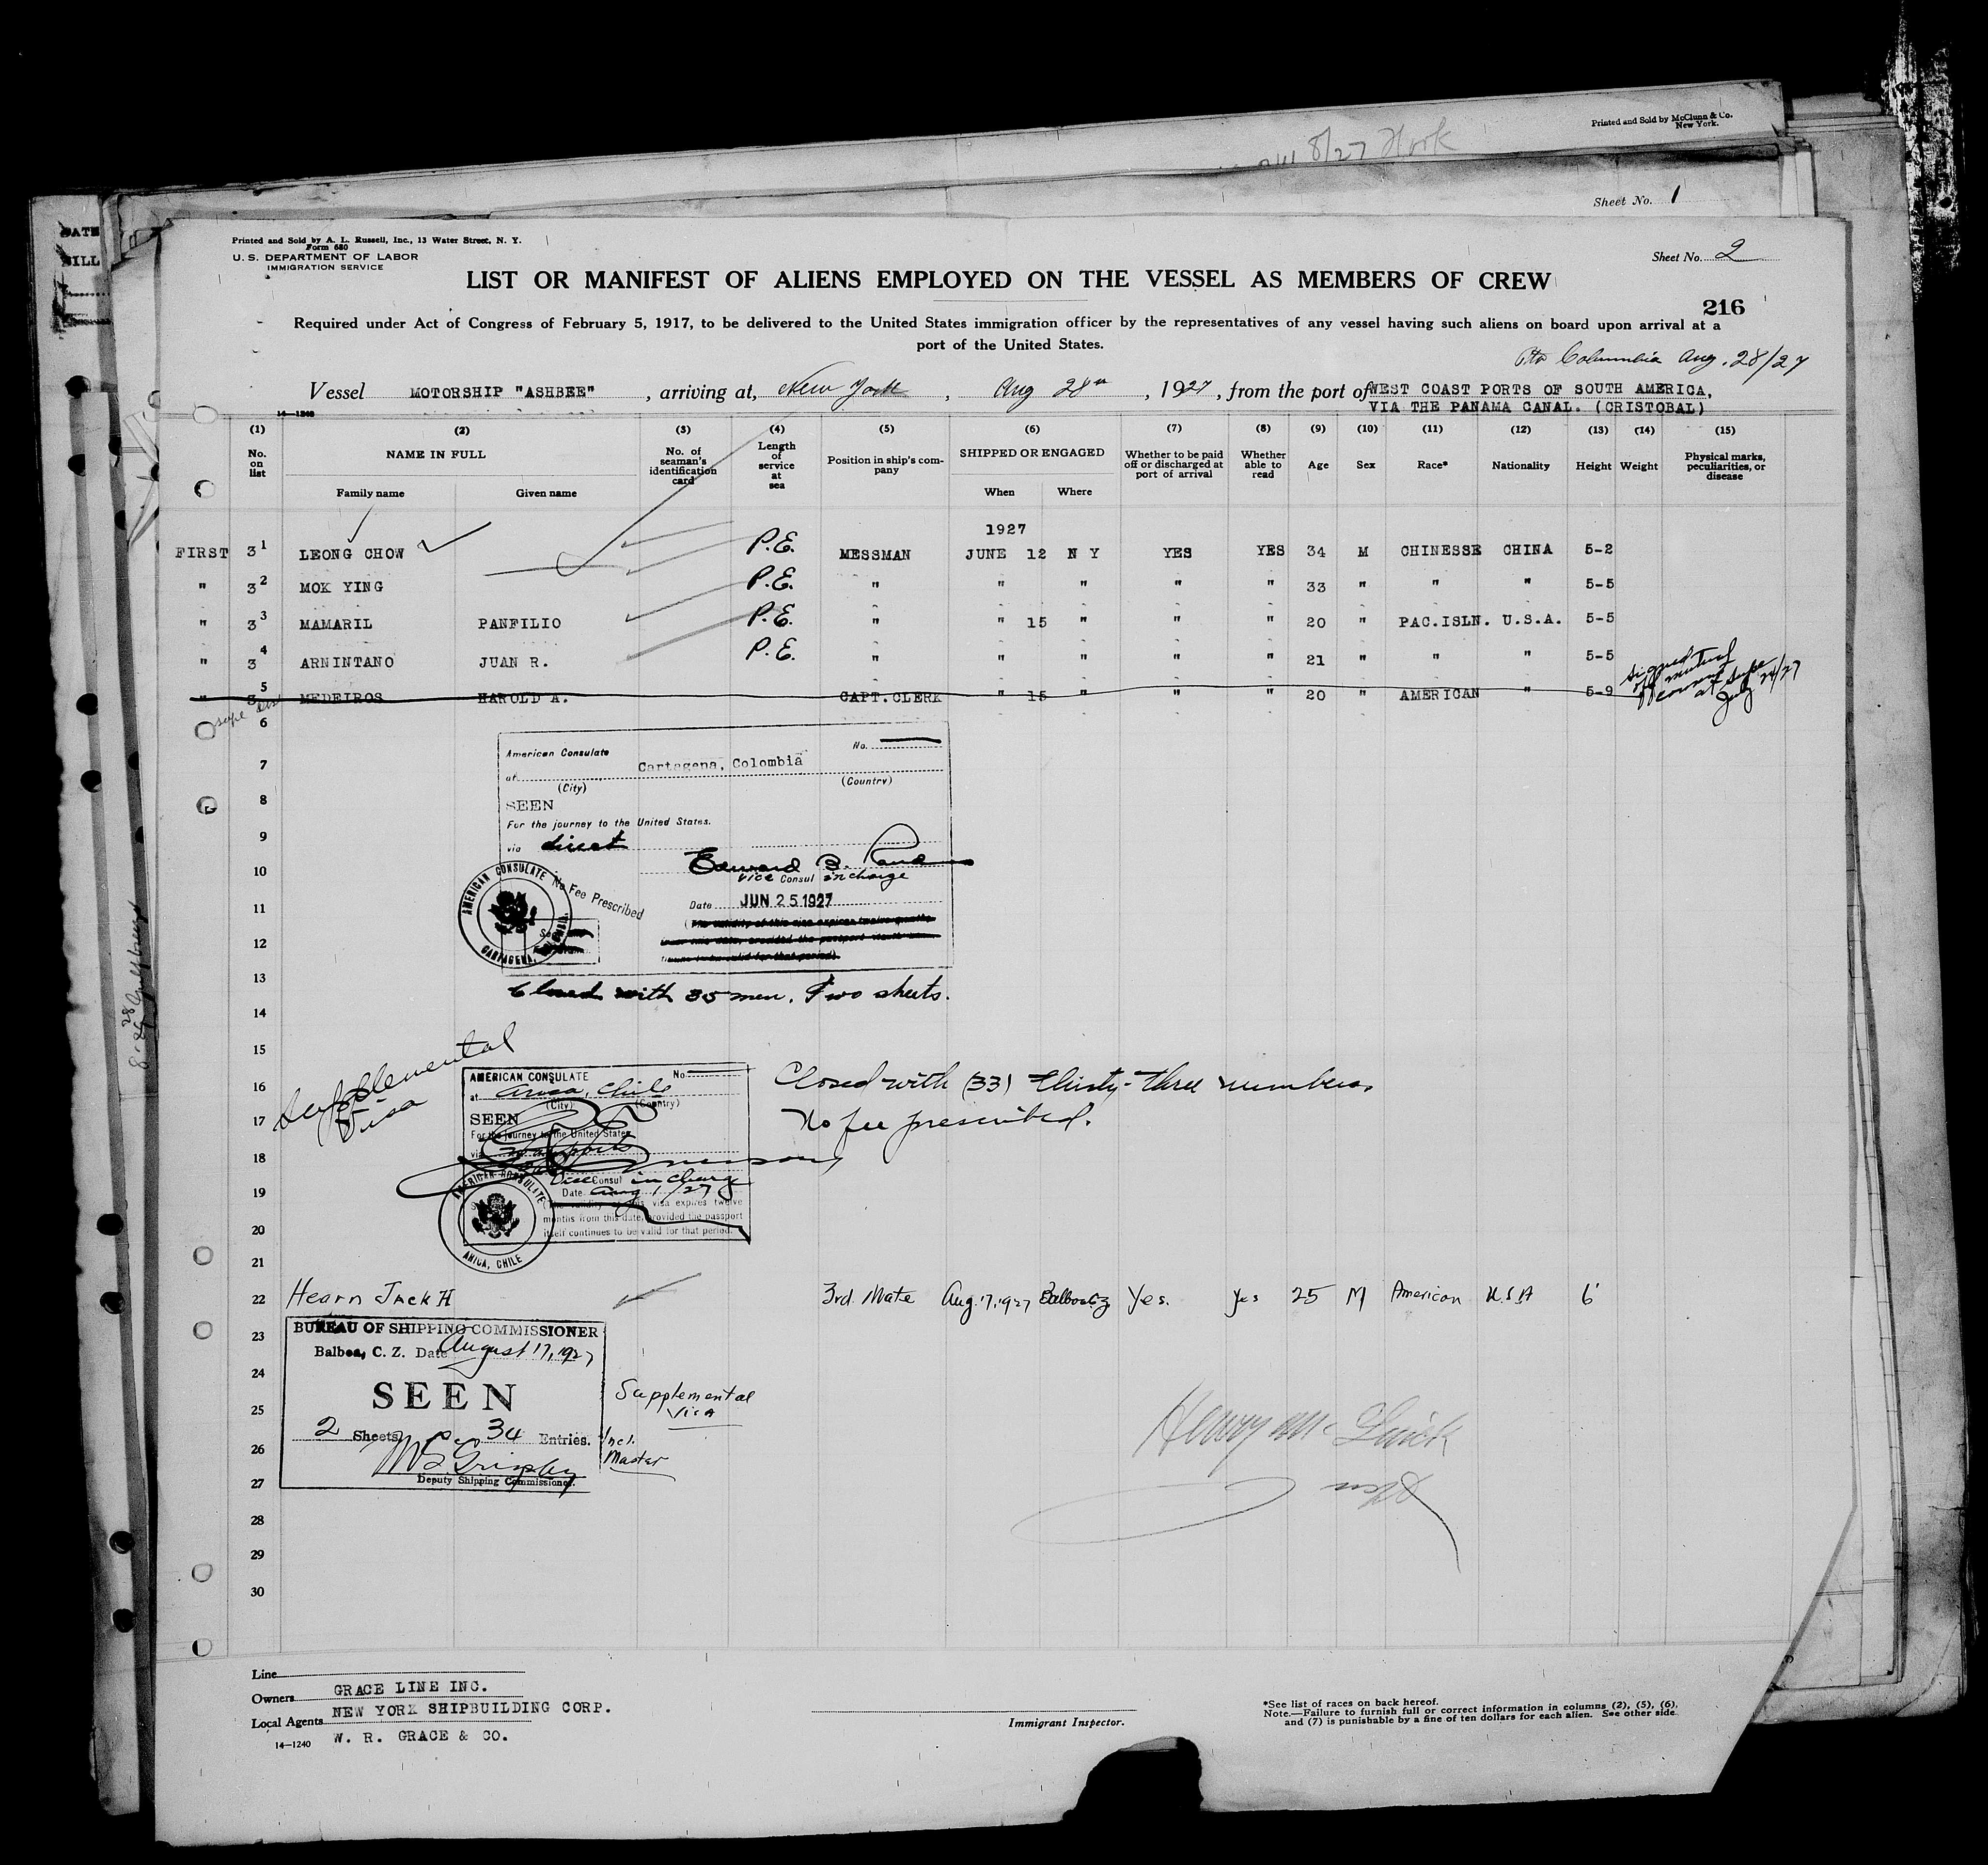 Printed and Sold by McClunn & Co.
New York.
8/27
Sheet No. 1
Printed and Sold by A. L. Russell, Inc., 13 Water Street, N. Y.
Form 680
U. S. DEPARTMENT OF LABOR
IMMIGRATION SERVICE
Sheet No. 2
LIST OR MANIFEST OF ALIENS EMPLOYED ON THE VESSEL AS MEMBERS OF CREW
216
Required under Act of Congress of February 5, 1917, to be delivered to the United States immigration officer by the representatives of any vessel having such aliens on board upon arrival at a
port of the United States.
Pto Columbia Aug. 28/27
Vessel MOTORSHIP "ASHBEE", arriving at, New York, Aug 28th, 1927, from the port of WEST COAST PORTS OF SOUTH AMERICA,
VIA THE PANAMA CANAL. (CRISTOBAL)
14—1240
(1) (2) (3) (4) (5) (6) (7) (8) (9) (10) (11) (12) (13) (14) (15)
No. on list NAME IN FULL Family name Given name No. of seaman's identification card Length of service at sea Position in ship's company SHIPPED OR ENGAGED When Where Whether to be paid off or discharged at port of arrival Whether able to read Age Sex Race* Nationality Height Weight Physical marks, peculiarities, or disease
1927
FIRST 31 LEONG CHOW P.E. MESSMAN JUNE 12 N Y YES YES 34 M CHINESSE CHINA 5-2
" 32 MOK YING P.E. " " " " " 33 " " " 5-5
" 33 MAMARIL PANFILIO P.E. " " 15 " " " 20 " PAC.ISLN. U.S.A. 5-5
" 34 ARNINTANO JUAN R. P.E. " " " " " 21 " " " 5-5
" 35 MEDEIROS HAROLD A. CAPT.CLERK " 15 " " " 20 " AMERICAN " 5-9
signed off mutual consent at Supe July 24/27
6
7
8
9
10
11
12
13
14
15
16
17
18
19
20
21
American Consulate No.
at Cartagena, Colombia
(City) (Country)
SEEN
For the journey to the United States.
via direct
Edward B. Rand
Vice Consul in charge
No Fee Prescribed
Date JUN 25 1927
AMERICAN CONSULATE
CARTAGENA, COLOMBIA
Closed with 35 men. Two sheets.
Supplemental
Visa
AMERICAN CONSULATE No.
at Arica, Chile
(City) (Country)
SEEN
For the journey to the United States
via
Vice Consul in charge
Date Aug 1/27
(The validity of this visa expires twelve
months from this date, provided the passport
itself continues to be valid for that period.
AMERICAN CONSULATE
ARICA, CHILE
Closed with (33) thirty-three members
No fee prescribed.
22 Hearn Jack H 3rd Mate Aug. 17, 1927 Balboa CZ Yes. Yes 25 M American U.S.A 6'
23
24
25
26
27
28
29
30
BUREAU OF SHIPPING COMMISSIONER
Balboa, C. Z. Date August 17, 1927
SEEN
2 Sheets 34 Entries.
Incl. Master
Deputy Shipping Commissioner.
Supplemental
Visa
Line
Owners GRACE LINE INC.
Local Agents NEW YORK SHIPBUILDING CORP.
14—1240 W. R. GRACE & CO.
Immigrant Inspector.
*See list of races on back hereof.
Note.—Failure to furnish full or correct information in columns (2), (5), (6),
and (7) is punishable by a fine of ten dollars for each alien. See other side.